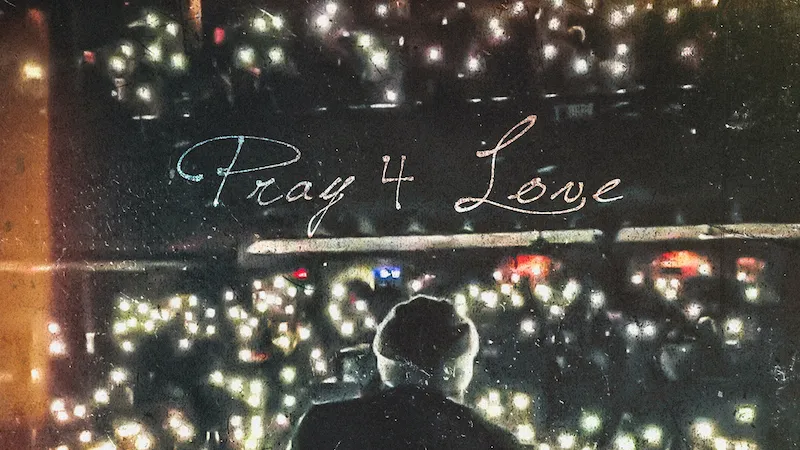 Pray 4 Love